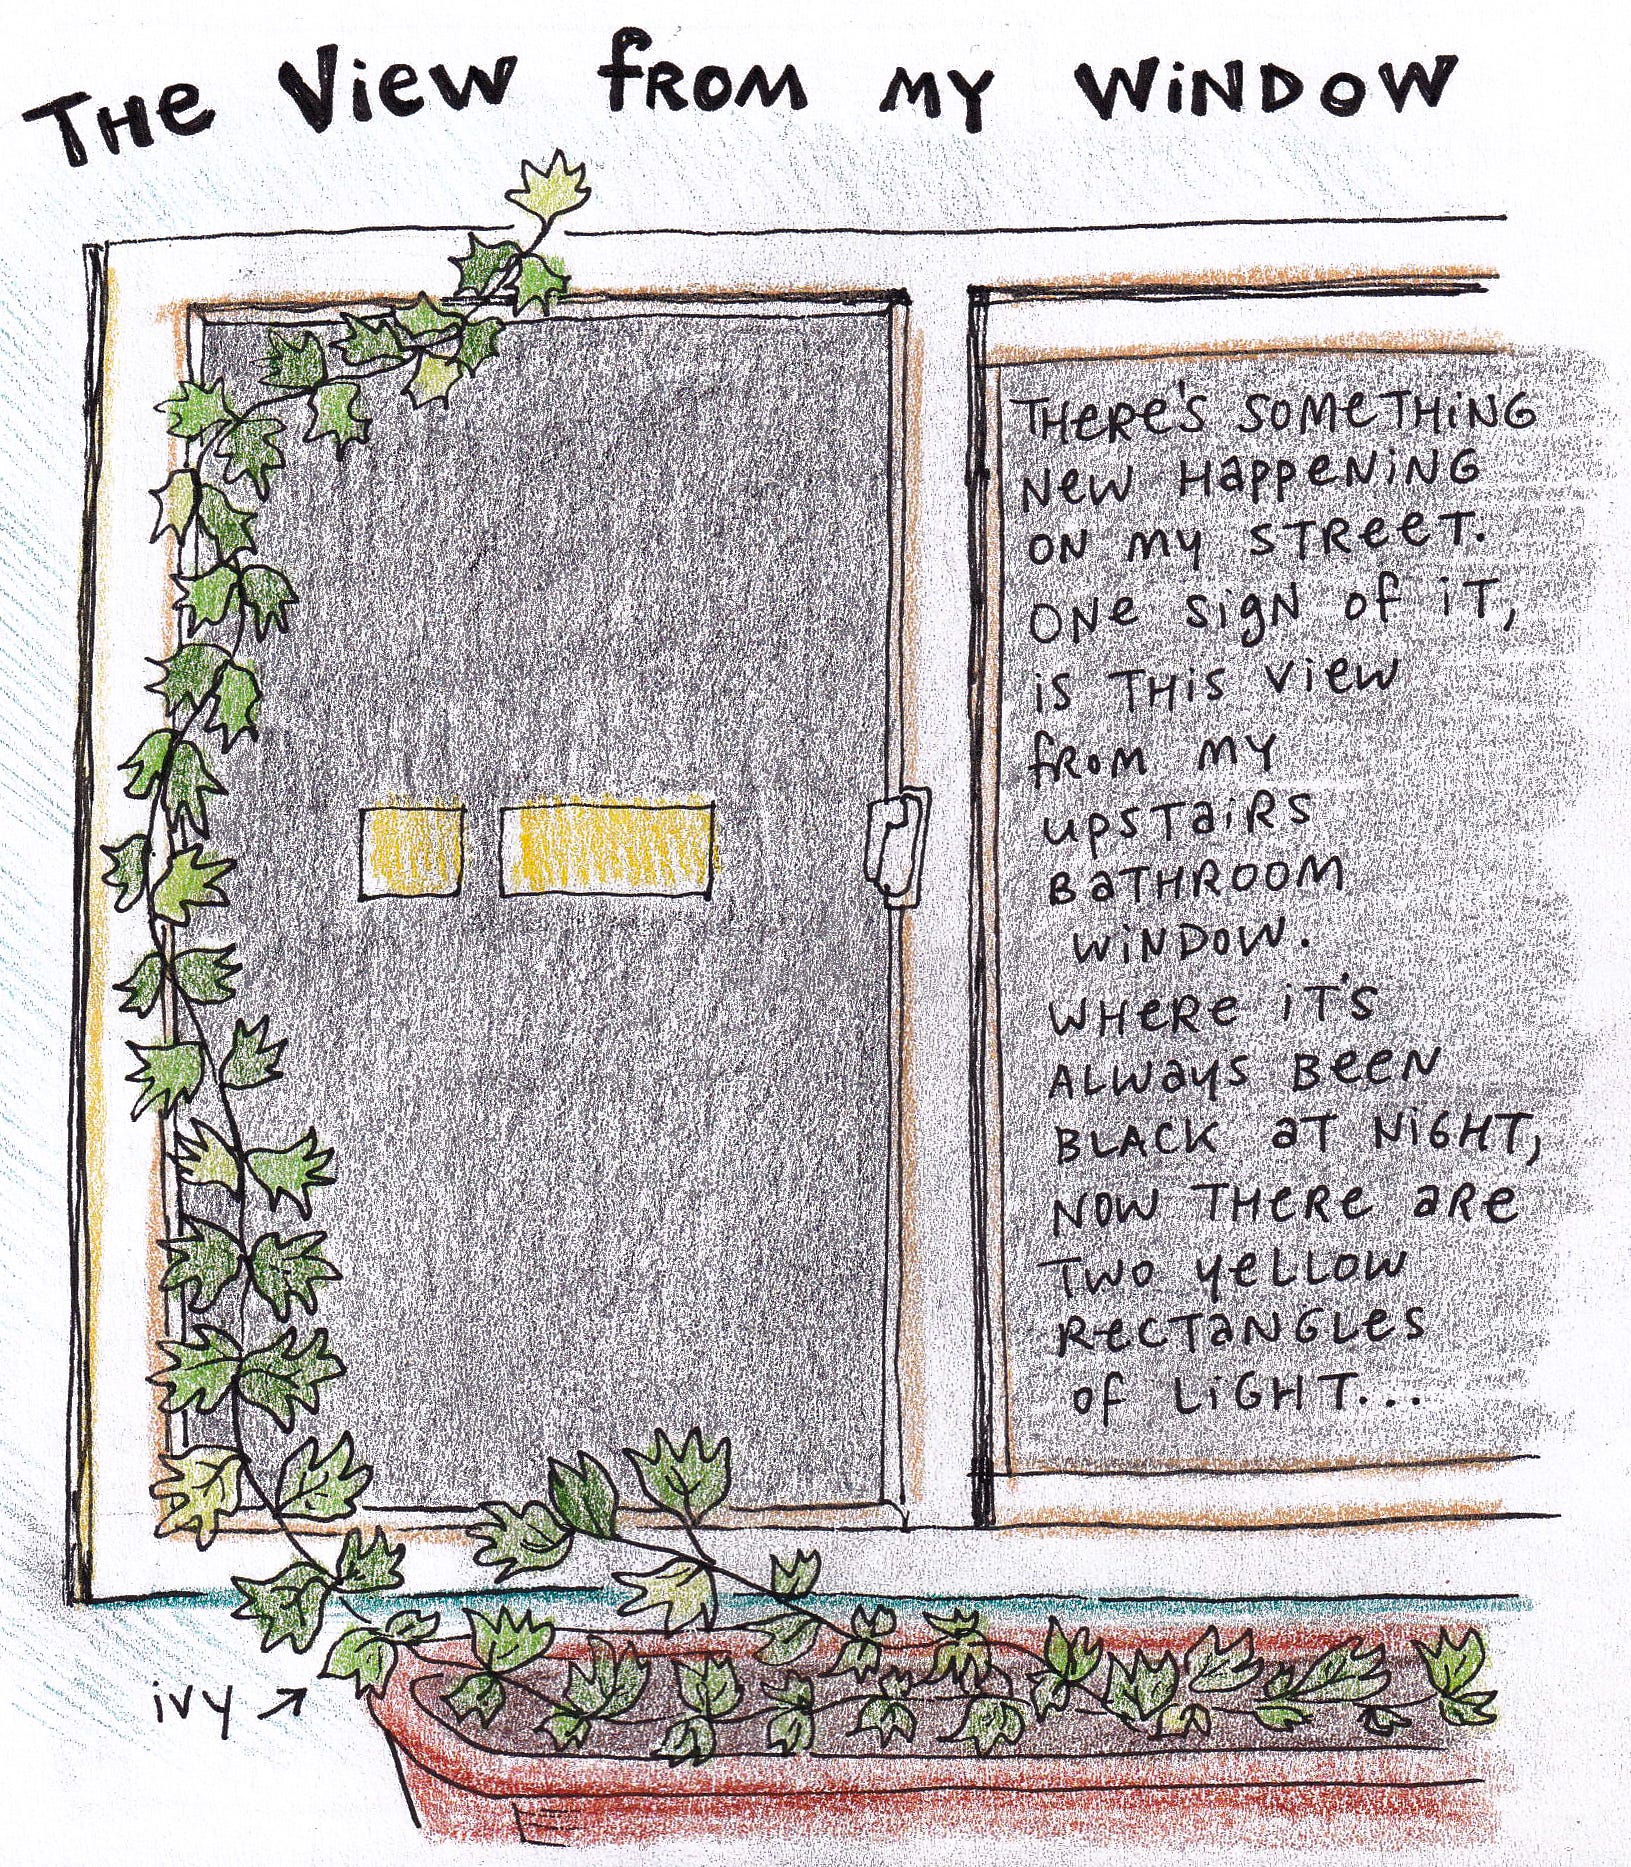 THe View fROM MY WiNDOW
THeRe'S SOMeTHiNG
New HappeNiNG
ON My STReeT.
ONe SigN Of iT,
iS THiS View
fROM MY
upSTaiRS
BaTHROOM
WiNDOW.
WHeRe iT'S
ALWayS BeeN
BLACK aT NiGHT,
NOW THeRe aRe
TWO yeLLOW
ReCTaNGLeS
Of LiGHT...
ivy →